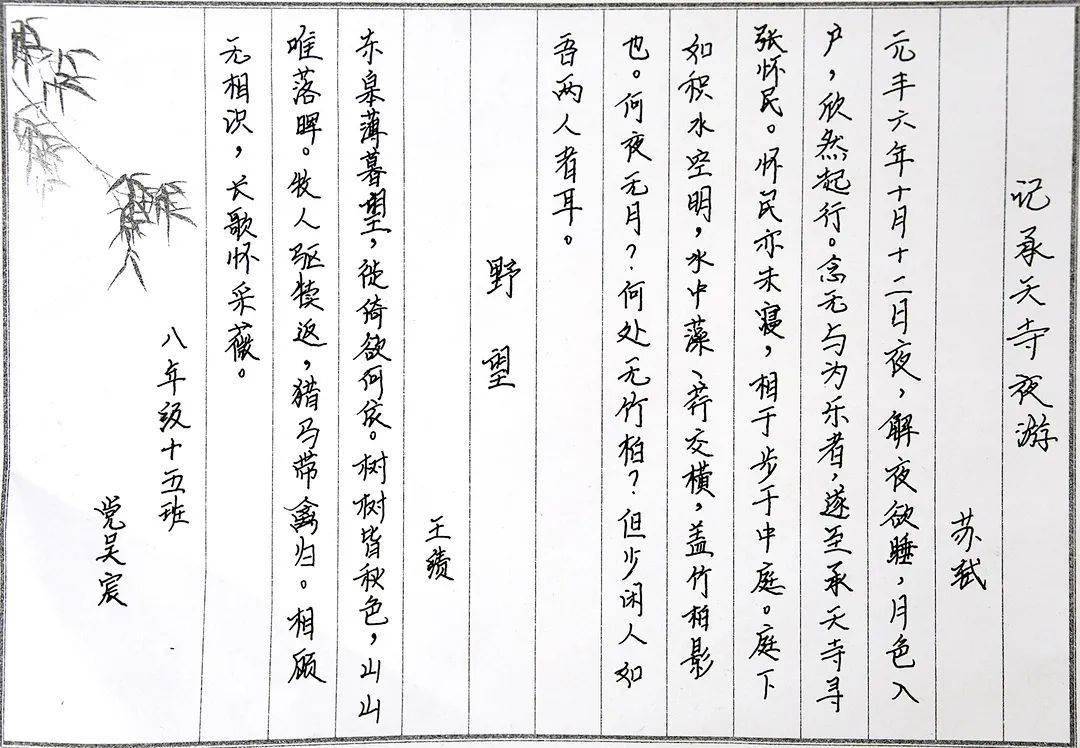 记承天寺夜游
苏轼
元丰六年十月十二日夜，解夜欲睡，月色入
户，欣然起行。念无与为乐者，遂至承天寺寻
张怀民。怀民亦未寝，相于步于中庭。庭下
如积水空明，水中藻、荇交横，盖竹柏影
也。何夜无月？何处无竹柏？但少闲人如
吾两人者耳。
野望
王绩
东皋薄暮望，徙倚欲何依。树树皆秋色，山山
唯落晖。牧人驱犊返，猎马带禽归。相顾
无相识，长歌怀采薇。
八年级十五班
党吴宸